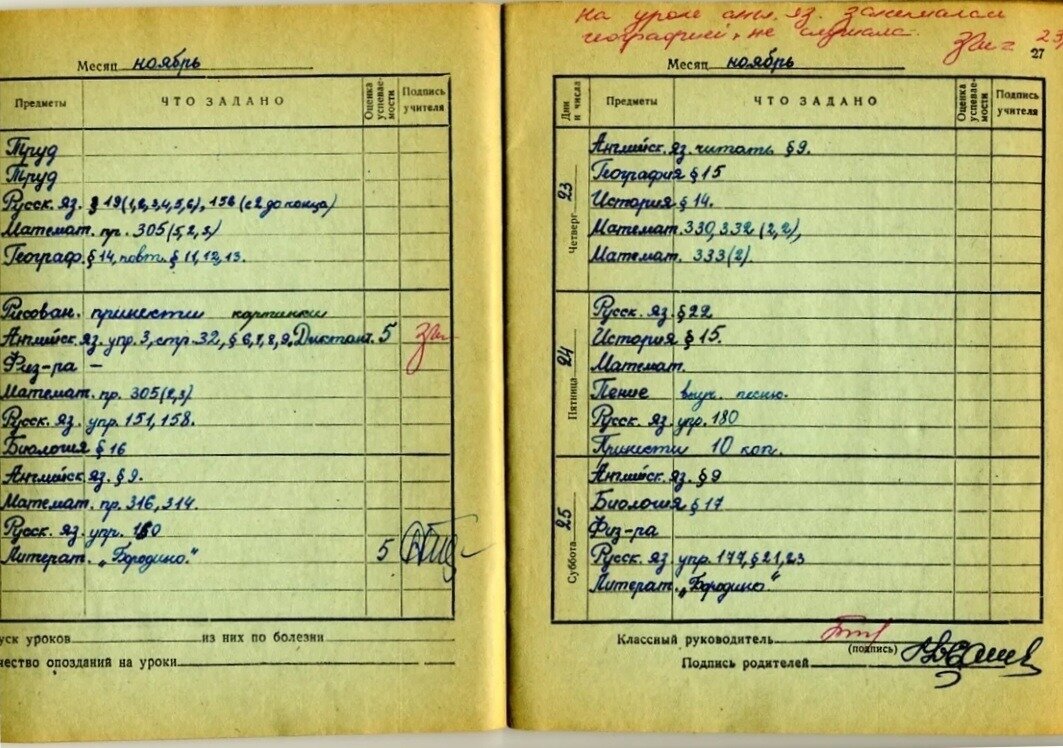 Месяц ноябрь
Предметы ЧТО ЗАДАНО Оценка успеваемости Подпись учителя
Труд
Труд
Русск. яз. § 19 (1,2,3,4,5,6), 156 (с 2 до конца)
Математ. пр. 305 (5,2,3)
Географ. § 14, повт. § 11, 12, 13.
Рисован. принести картинки
Английск. яз. упр. 3, стр. 32, § 6,7,8,9. Диктант. 5
Физ-ра –
Математ. пр. 305 (2,3)
Русск. яз. упр. 151, 158.
Биология § 16
Английск. яз. § 9.
Математ. пр. 316, 314.
Русск. яз. упр. 160
Литерат. „Бородино." 5
уск уроков из них по болезни
чество опозданий на уроки
На уроке анг. яз. занималась
географией, не слушала.
23
27
Месяц ноябрь
Дни и числа Предметы ЧТО ЗАДАНО Оценка успеваемости Подпись учителя
Четверг 23
Английск. яз. читать § 9.
География § 15
История § 14.
Математ. 330, 332 (2,2),
Математ. 333 (2).
Пятница 24
Русск. яз. § 22
История § 15.
Математ.
Пение выуч. песню.
Русск. яз. упр. 180
Принести 10 коп.
Суббота 25
Английск. яз. § 9
Биология § 17
Физ-ра
Русск. яз. упр. 177, § 21, 23
Литерат. „Бородино"
Классный руководитель
(подпись)
Подпись родителей